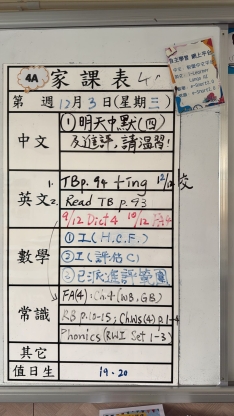 4A 家課表
第 週 12月 3日(星期三)
中文
① 明天中默(四)
及進評,請溫習!
英文
1. TB p. 94 + ing 12/12 交
2. Read TB p. 93
9/12 Dict 4 10/12
數學
① 工(H.C.F.)
② 工(評估C)
③ 已派進評範圍
常識
FA(4): Ch.4 (WB, GB)
RB p.10-15; Ch.WS(4) p.1-4
Phonics (RWI Set 1-3)
其它
值日生
19, 20